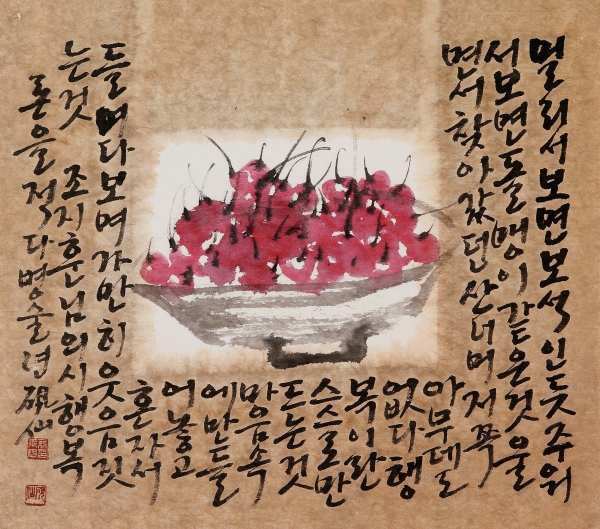 멀리서보면보석인듯주워
서보면돌맹이같은것울
면서찾아갔던산너머저쪽
아무델
없다행
복이란
스스로만
드는것
마음속
에만들
어놓고
혼자서
들여다보며가만히웃음짓
는것 조지훈님의시행복
론을적다병술년硯仙